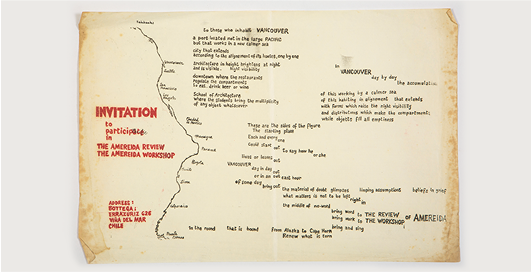 to those who inhabit VANCOUVER
a port located not in the large PACIFIC
but that works in a new calmer sea
city that extends
according to the alignment of its houses, one by one
Architecture in height, brightest at night
and so visible. night visibility
downtown where the restaurants
regulate the compartments
to eat, drink beer or wine
School of Architecture
where the students bring the multiplicity
of any object whatsoever
in
VANCOUVER
day by day
the accumulation
of this working by a calmer sea
of this habiting in alignment that extends
with forms which raise the night visibility
and distributions which make the compartments;
while objects fill all emptiness
INVITATION
to
participate
in
THE AMEREIDA REVIEW
THE AMEREIDA WORKSHOP
ADDRESS:
BOTTEGA:
ERRAZURIZ 626
VIÑA DEL MAR
CHILE
Vancouver
Seattle
Panama
Bogota
These are the sides of the figure
The starting place
Each and every one
Could start out
to say how he
or she
lives or leaves out
VANCOUVER
day in day out
or in an out
each hour
of some day
bring out
the material of doubt glimpses sloping assumptions beliefs in grief
what matters is not to be left
right in
the middle of no-word
bring word to THE REVIEW
bring work to THE WORKSHOP
of AMEREIDA
bring and sing
to the round that is bound from Alaska to Cape Horn
Renew what is torn